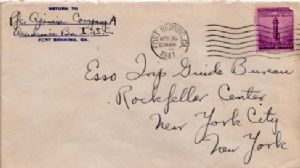 RETURN TO
Company A
FORT BENNING, GA.
FORT BENNING, GA.
APR
1941
Esso Trip Guide Bureau
Rockfeller Center
New York City
New York